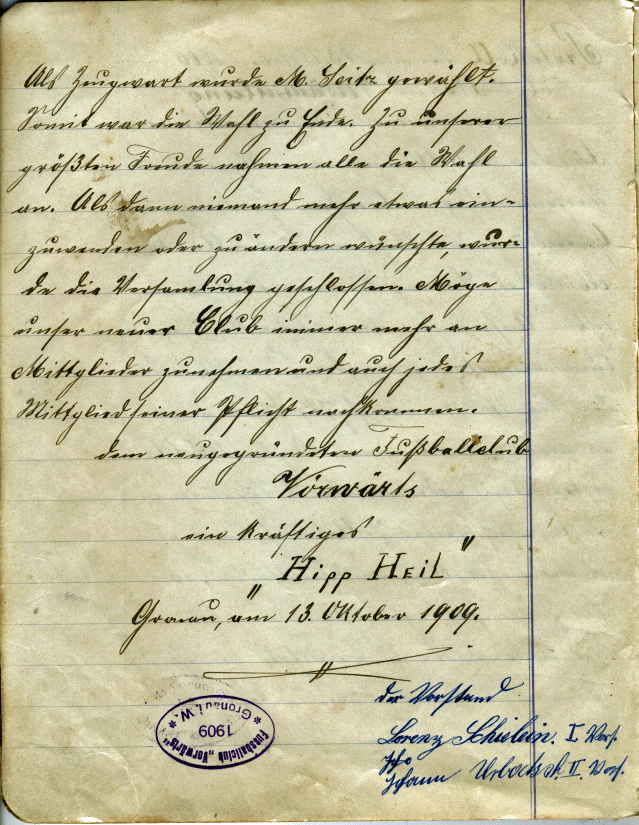 Als Zeugwart wurde M. Seitz gewählt.
Somit war die Wahl zu Ende. Zu unserer
größten Freude nahmen alle die Wahl
an. Als dann niemand mehr etwas ein-
zuwenden oder zu ändern wünschte, wur-
de die Versamlung geschlossen. Möge
unser neuer Club immer mehr an
Mittglieder zunehmen und auch jedes
Mittglied seiner Pflicht nachkommen.
dem neugegründeten Fußballclub
Vorwärts
ein kräftiges
"Hipp Heil"
Gronau, am 13. Oktober 1909.
der Vorstand
Lorenz Schielein. I Vors.
Johann II. Vors.
Fussballclub „Vorwärts“
* Gronau i. W. *
1909